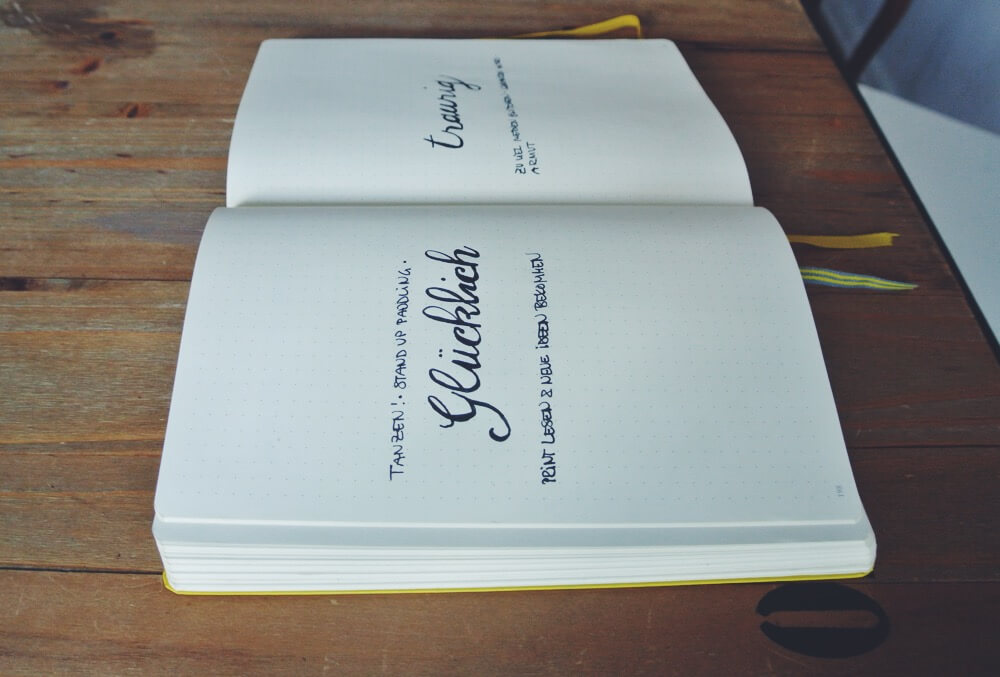 traurig
ZU VIEL
ARMUT
TANZEN! • STAND UP PADDLING •
Glücklich
PRINT LESEN & NEUE IDEEN BEKOMMEN